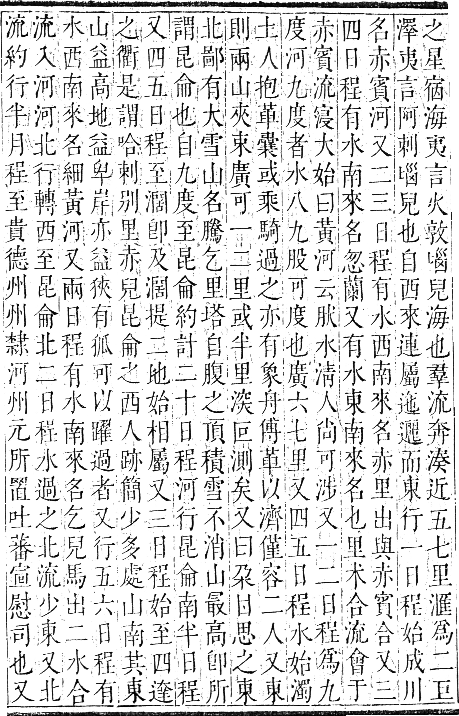 之星宿海夷言火敦腦兒海也羣流奔湊近五七里滙爲二巨
澤夷言阿剌腦兒也自西來連屬迤邐而東行一日程始成川
名赤賓河又二三日程有水西南來名赤里出與赤賓合又三
四日程有水南來名忽蘭又有水東南來名也里术合流會于
赤賓流寖大始曰黃河云肰水淸人尚可涉又一二日程爲九
度河九度者水八九股可度也廣六七里又四五日程水始濁
土人抱革囊或乘騎過之亦有象舟傅革以濟僅容二人又東
則兩山夾束廣可一二里或半里深叵測矣又曰朶甘思之東
北鄙有大雪山名騰乞里塔自腹之頂積雪不消山最高卽所
謂昆侖也自九度至昆侖約計二十日程河行昆侖南半日程
又四五日程至濶卽及濶提二地始相屬又三日程始至四達
之衢是謂哈剌别里赤兒昆侖之西人跡簡少多處山南其東
山益高地益卑岸亦益狹有狐可以躍過者又行五六日程有
水西南來名細黃河又兩日程有水南來名乞兒馬出二水合
流入河河北行轉西至昆侖北二日程水過之北流少東又北
流約行半月程至貴德州州隸河州元所置吐蕃宣慰司也又